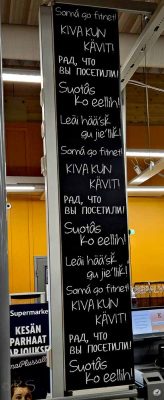 Sonná go fitnet!
KIVA KUN
KÄVIT!
РАД, ЧТО
ВЫ ПОСЕТИЛИ!
Suotâs
ko eellih!
Leäi hää'sǩ
gu jie'llik!
Sonná go fitnet!
KIVA KUN
KÄVIT!
РАД, ЧТО
ВЫ ПОСЕТИЛИ!
Suotâs
ko eellih!
Leäi hää'sǩ
gu jie'llik!
Sonná go fitnet!
KIVA KUN
KÄVIT!
РАД, ЧТО
ВЫ ПОСЕТИЛИ!
Suotâs
ko eellih!
Supermarke
KESÄN
PARHAAT
ARJOUKSE